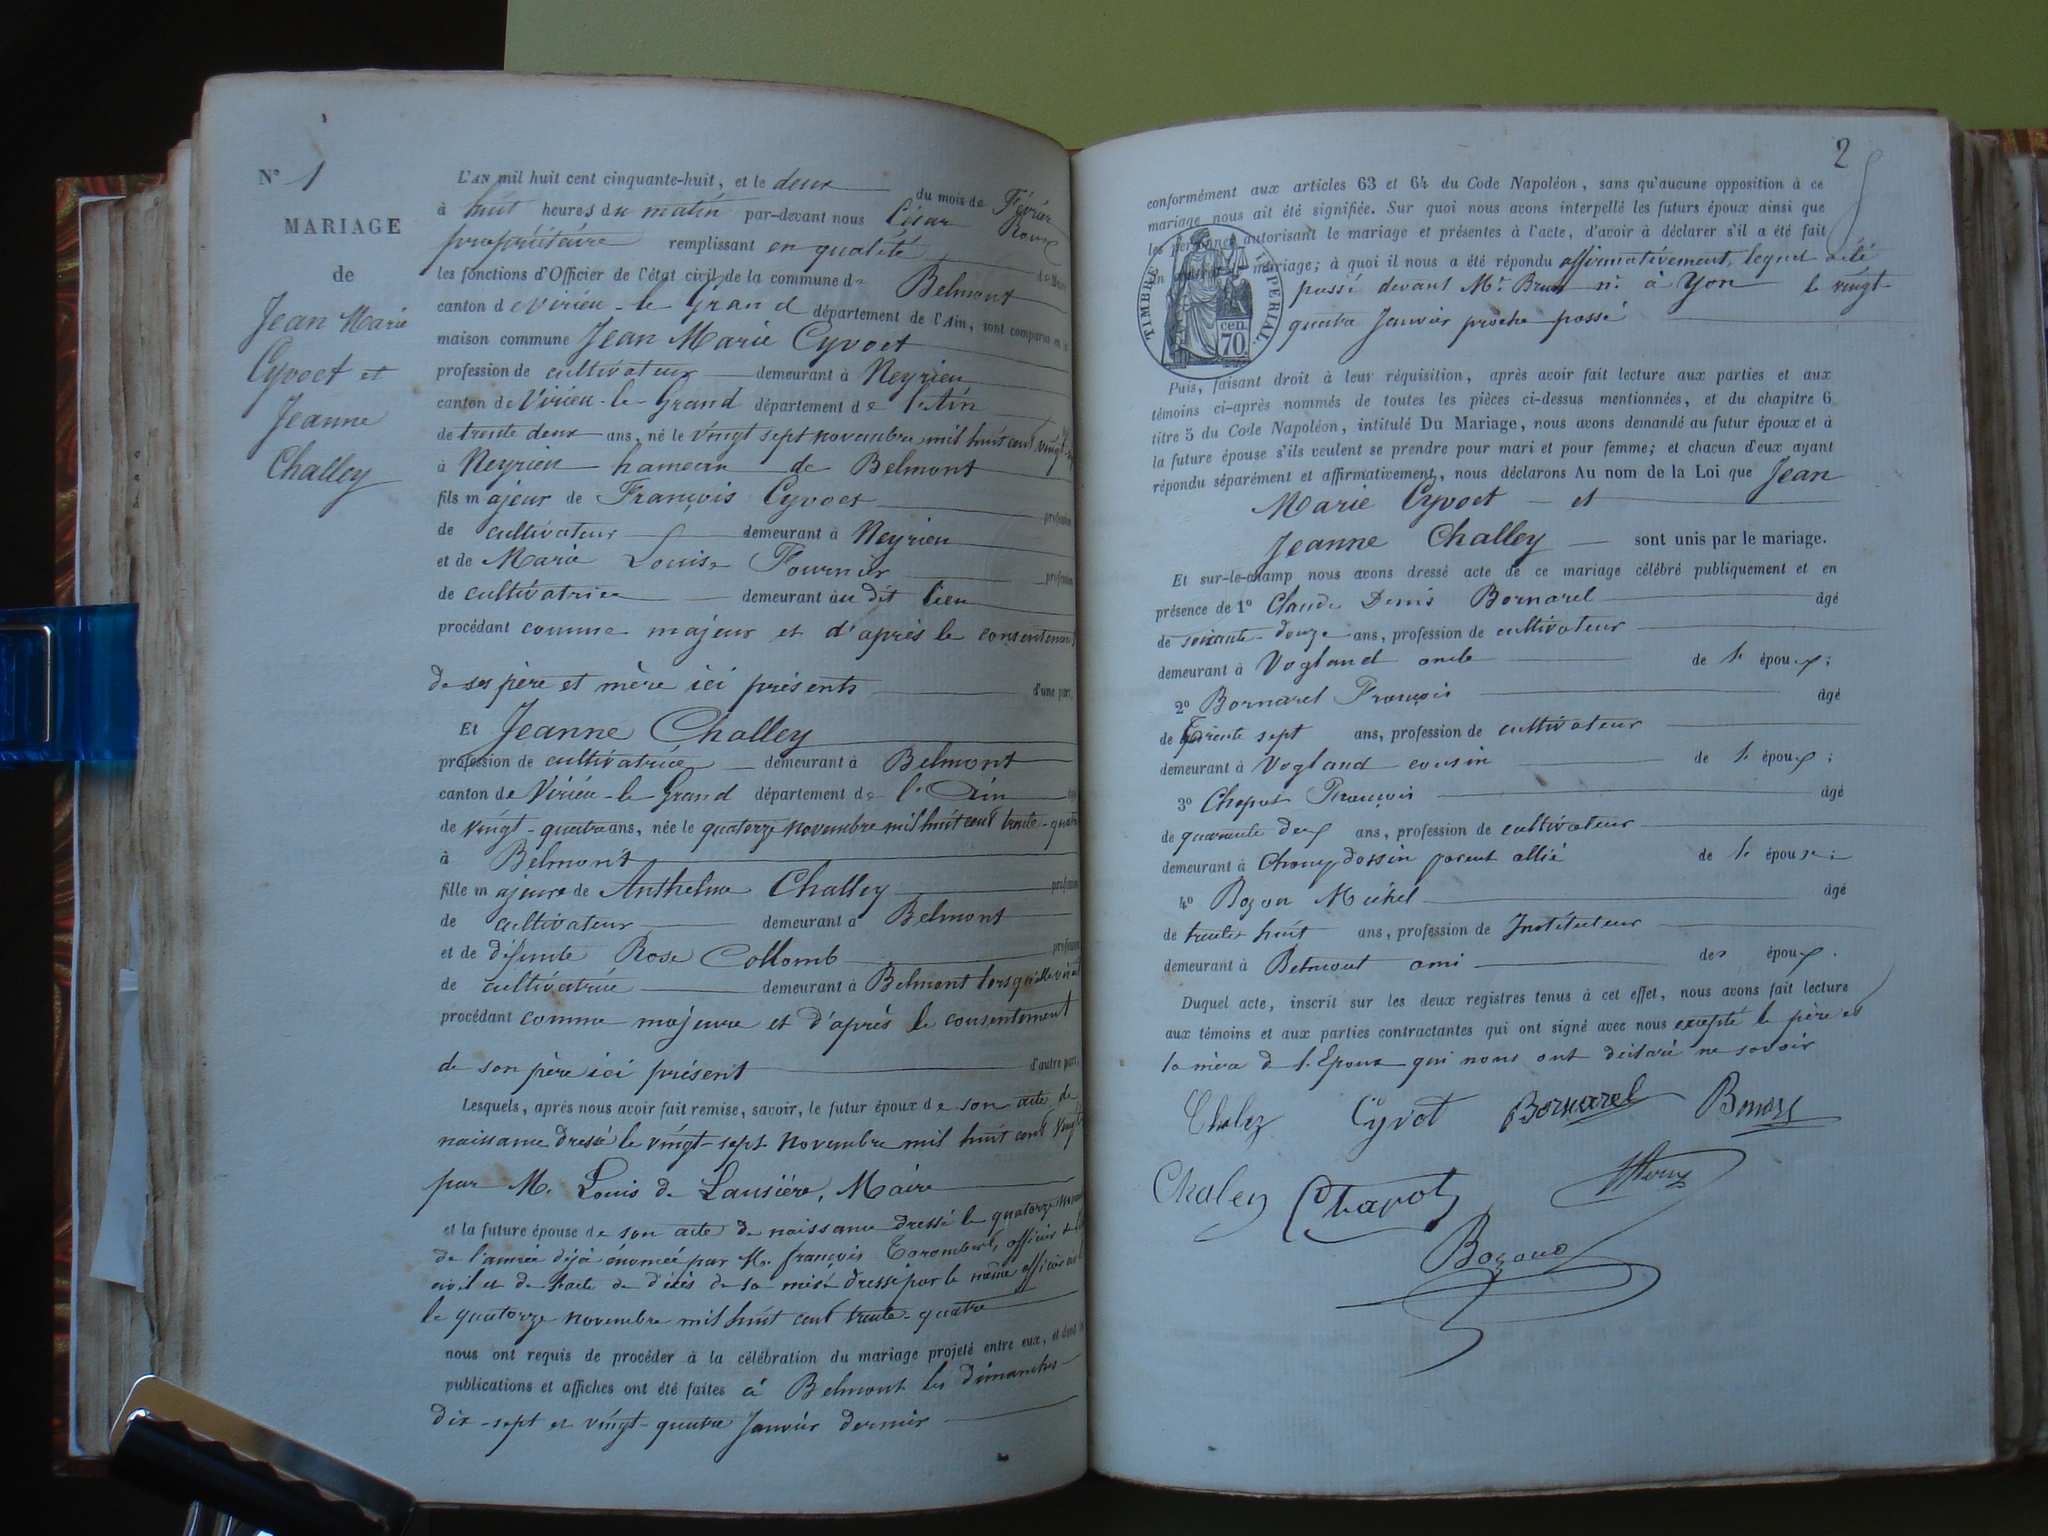 N° 1
MARIAGE
de
Jean Marie
Cyvoct et
Jeanne
Challey
L'AN mil huit cent cinquante-huit, et le deux du mois de Février
à huit heures du matin par-devant nous César Roux
propriétaire remplissant en qualité de Maire
les fonctions d'Officier de l'état civil de la commune de Belmont
canton de Virieu-le-Grand département de l'Ain, sont comparus en la
maison commune Jean Marie Cyvoct
profession de cultivateur demeurant à Neyrieu
canton de Virieu-le-Grand département de l'Ain
de trente deux ans, né le vingt sept novembre mil huit cent vingt
à Neyrieu hameau de Belmont
fils majeur de François Cyvoct profession
de cultivateur demeurant à Neyrieu
et de Marie Louise Fournier profession
de cultivatrice demeurant au dit lieu
procédant comme majeur et d'après le consentement
de ses père et mère ici présents d'une part,
Et Jeanne Challey
profession de cultivatrice demeurant à Belmont
canton de Virieu-le-Grand département de l'Ain
de vingt-quatre ans, née le quatorze novembre mil huit cent trente-quatre
à Belmont
fille majeure de Anthelme Challey profession
de cultivateur demeurant à Belmont
et de défunte Rose Collomb profession
de cultivatrice demeurant à Belmont lorsqu'elle vivait
procédant comme majeure et d'après le consentement
de son père ici présent d'autre part,
Lesquels, après nous avoir fait remise, savoir, le futur époux de son acte de
naissance dressé le vingt-sept novembre mil huit cent vingt
par M. Louis de Lausière, Maire
et la future épouse de son acte de naissance dressé le quatorze novembre
de l'année déjà énoncée par M. françois Torombert, officier de l'état
civil et de l'acte de décès de sa mère dressé par le même officier
le quatorze novembre mil huit cent trente-quatre
nous ont requis de procéder à la célébration du mariage projeté entre eux, et dont les
publications et affiches ont été faites à Belmont les dimanches
dix-sept et vingt-quatre Janvier dernier
2
conformément aux articles 63 et 64 du Code Napoléon, sans qu'aucune opposition à ce
mariage nous ait été signifiée. Sur quoi nous avons interpellé les futurs époux ainsi que
les personnes autorisant le mariage et présentes à l'acte, d'avoir à déclarer s'il a été fait
un contrat de mariage; à quoi il nous a été répondu affirmativement, lequel a été
passé devant Mr. Brun nre. à Yon le vingt-
quatre Janvier proche passé
TIMBRE IMPERIAL.
cen.
70
Puis, faisant droit à leur réquisition, après avoir fait lecture aux parties et aux
témoins ci-après nommés de toutes les pièces ci-dessus mentionnées, et du chapitre 6
titre 5 du Code Napoléon, intitulé Du Mariage, nous avons demandé au futur époux et à
la future épouse s'ils veulent se prendre pour mari et pour femme; et chacun d'eux ayant
répondu séparément et affirmativement, nous déclarons Au nom de la Loi que Jean
Marie Cyvoct et
Jeanne Challey sont unis par le mariage.
Et sur-le-champ nous avons dressé acte de ce mariage célébré publiquement et en
présence de 1° Claude Denis Bornarel âgé
de soixante-douze ans, profession de cultivateur
demeurant à Vogland oncle de l'époux;
2° Bornarel François âgé
de trente sept ans, profession de cultivateur
demeurant à Vogland cousin de l'époux;
3° Chapot François âgé
de quarante deux ans, profession de cultivateur
demeurant à Champdossin parent allié de l'époux;
4° Bozon Michel âgé
de trente huit ans, profession de Instituteur
demeurant à Belmont ami des époux.
Duquel acte, inscrit sur les deux registres tenus à cet effet, nous avons fait lecture
aux témoins et aux parties contractantes qui ont signé avec nous excepté le père et
la mère de l'Epoux qui nous ont déclaré ne savoir
Cyvot Bornarel
Chaley Chapot